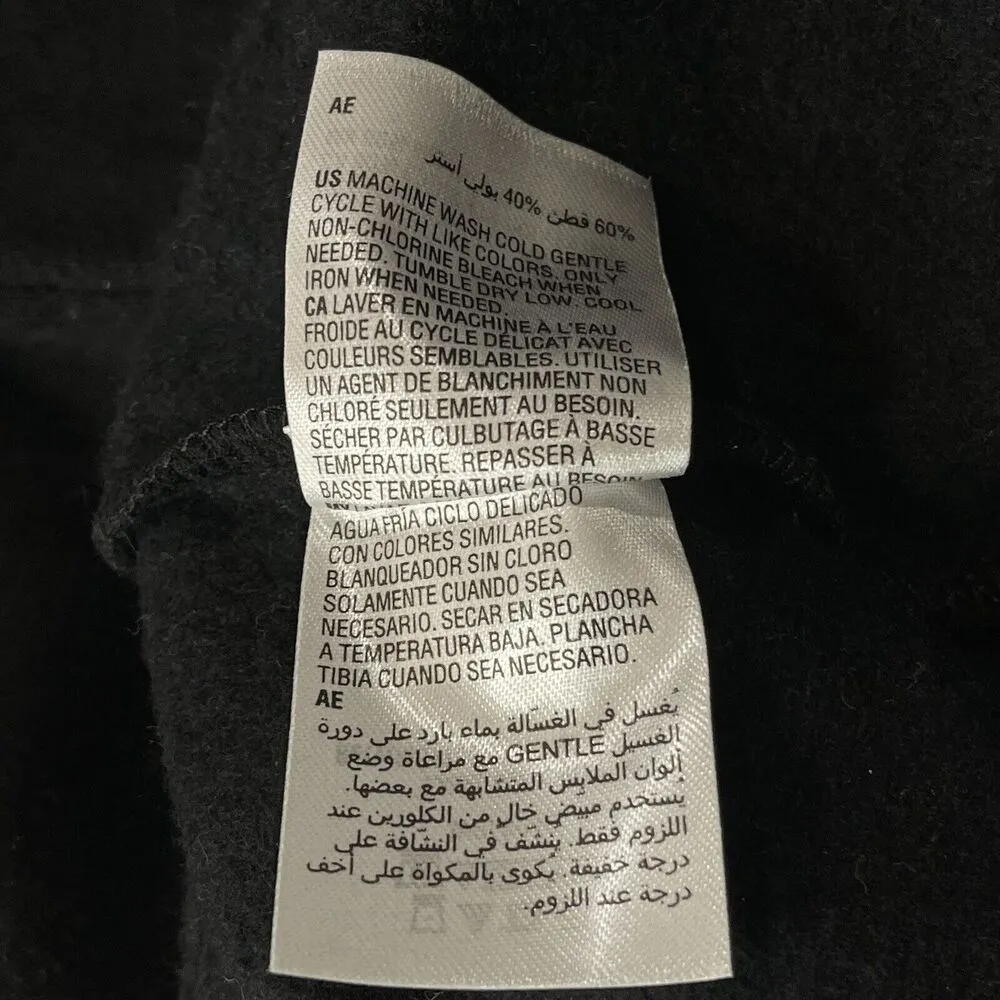 AE
60% قطن 40% بولي أستر
US MACHINE WASH COLD GENTLE
CYCLE WITH LIKE COLORS. ONLY
NON-CHLORINE BLEACH WHEN
NEEDED. TUMBLE DRY LOW. COOL
IRON WHEN NEEDED.
CA LAVER EN MACHINE À L'EAU
FROIDE AU CYCLE DÉLICAT AVEC
COULEURS SEMBLABLES. UTILISER
UN AGENT DE BLANCHIMENT NON
CHLORÉ SEULEMENT AU BESOIN.
SÉCHER PAR CULBUTAGE À BASSE
TEMPÉRATURE. REPASSER À
BASSE TEMPÉRATURE AU BESOIN
AGUA FRÍA CICLO DELICADO
CON COLORES SIMILARES.
BLANQUEADOR SIN CLORO
SOLAMENTE CUANDO SEA
NECESARIO. SECAR EN SECADORA
A TEMPERATURA BAJA. PLANCHA
TIBIA CUANDO SEA NECESARIO.
AE
يُغسل في الغسّالة بماء بارد على دورة
الغسيل GENTLE مع مراعاة وضع
ألوان الملابس المتشابهة مع بعضها.
يستخدم مبيّض خالٍ من الكلورين عند
اللزوم فقط. ينشّف في النشّافة على
درجة خفيفة. يُكوى بالمكواة على أخف
درجة عند اللزوم.